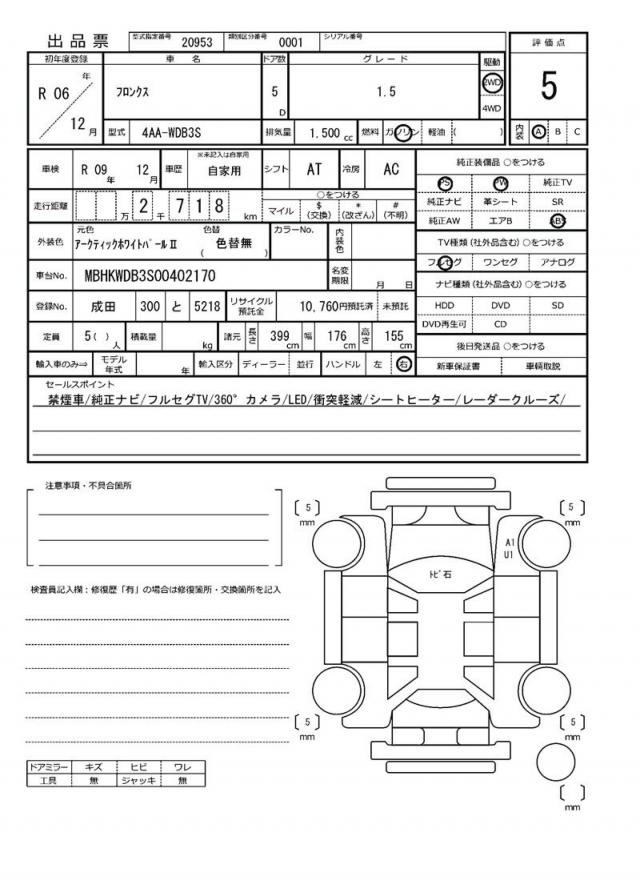 出品票 型式指定番号 20953 類別区分番号 0001 シリアル番号
評価点
5
内装 A B C
初年度登録 車名 ドア数 グレード 駆動
R 06 年 12 月 フロンクス 5 D 1.5 2WD 4WD
型式 4AA-WDB3S 排気量 1.500 cc 燃料 ガソリン 軽油 ( )
車検 R 09 年 12 月 車歴 ※未記入は自家用 自家用 シフト AT 冷房 AC
走行距離 万 2 千 7 1 8 km ○をつける マイル $ (交換) * (改ざん) # (不明)
外装色 元色 アークティックホワイトパールⅡ 色替 色替無 ( ) カラーNo. 内装色
車台No. MBHKWDB3S00402170 名変期限 月 日
登録No. 成田 300 と 5218 リサイクル預託金 10,760円預託済 未預託
定員 5( ) 人 積載量 kg 諸元 長さ 399 cm 幅 176 cm 高さ 155 cm
輸入車のみ⇒ モデル年式 年 輸入区分 ディーラー 並行 ハンドル 左 右
純正装備品 ○をつける
PS PW 純正TV
純正ナビ 革シート SR
純正AW エアB ABS
TV種類(社外品含む)○をつける
フルセグ ワンセグ アナログ
ナビ種類(社外品含む)○をつける
HDD DVD SD
DVD再生可 CD
後日発送品 ○をつける
新車保証書 車輌取説
セールスポイント
禁煙車/純正ナビ/フルセグTV/360°カメラ/LED/衝突軽減/シートヒーター/レーダークルーズ/
注意事項・不具合箇所
検査員記入欄：修復歴「有」の場合は修復箇所・交換箇所を記入
ドアミラー キズ ヒビ ワレ
工具 無 ジャッキ 無
5 mm
5 mm
A1
U1
トビ石
5 mm
5 mm
mm